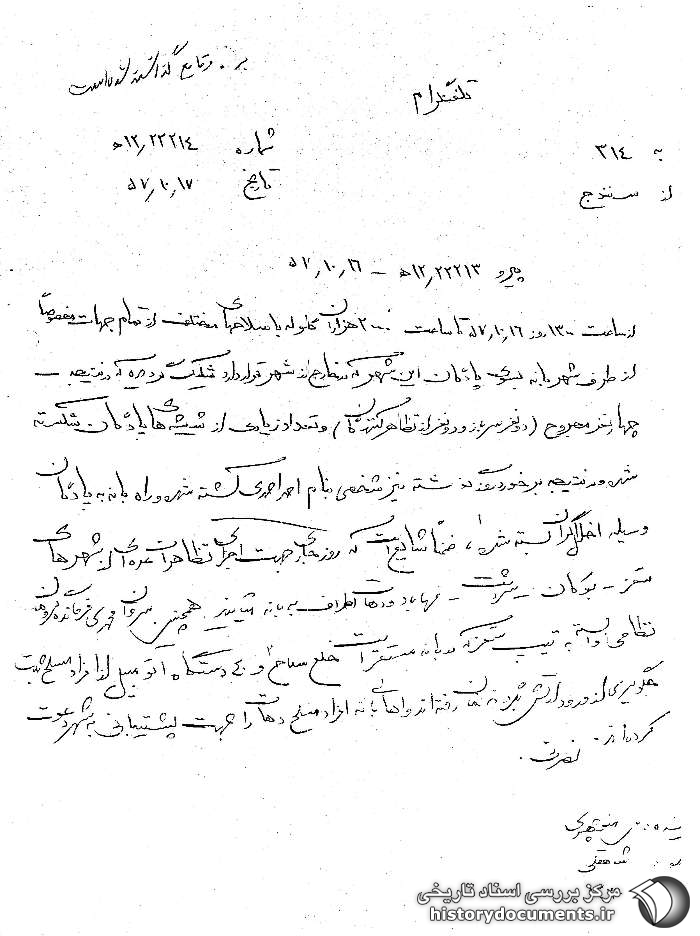 تلفنگرام
به ۳۱۴
از سنندج
شماره ۱۲٫۲۲۲۱۴ه‍
تاریخ ۵۷٫۱۰٫۱۷
پیرو ۱۲٫۲۲۲۱۳ه‍ – ۵۷٫۱۰٫۱۶
از ساعت ۱۳۰۰ روز ۵۷٫۱۰٫۱۶ تا ساعت ۲۰۰۰ هزاران گلوله با سلاحهای مختلف از تمام جهات مخصوصاً
از طرف شهر بانه بسوی پادگان این شهر که در خارج از شهر قرار دارد شلیک گردیده که در نتیجه –
چهار نفر مجروح (دو نفر سرباز و دو نفر از تظاهرکنندگان) و تعداد زیادی از شیشه‌های پادگان شکسته
شده و در نتیجه برخورد گذشته نیز شخصی بنام احمدی کشته شده و راه بانه به پادگان
وسیله اخلالگران بسته شده، ضمناً شایع است که روز جاری جهت اجرای تظاهرات عده‌ای از شهرهای
سقز – بوکان – سردشت – مهاباد و دهات اطراف به بانه بیایند. همچنین ستوان مهدی فرمانده گروهان
نظامی وابسته به تیپ سقز که در بانه مستقر است خلع سلاح و ۴۰ دستگاه اتومبیل از افراد مسلح جهت
جلوگیری از ورود ارتش رفته‌اند و اهالی بانه افراد مسلح دهات را جهت پشتیبانی به شهر دعوت
کرده‌اند.
نصرتی.
مرکز بررسی اسناد تاریخی
historydocuments.ir